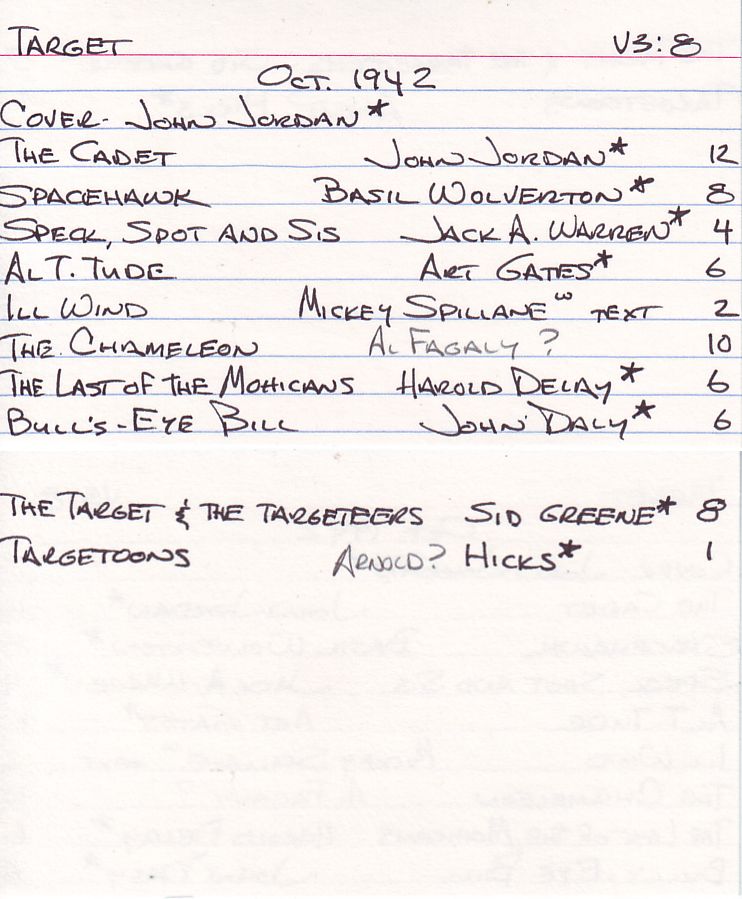 TARGET V3:8
OCT. 1942
COVER- JOHN JORDAN*
THE CADET JOHN JORDAN* 12
SPACEHAWK BASIL WOLVERTON* 8
SPECK, SPOT AND SIS JACK A. WARREN* 4
AL T. TUDE ART GATES* 6
ILL WIND MICKEY SPILLANE ω TEXT 2
THE CHAMELEON AL FAGALY ? 10
THE LAST OF THE MOHICANS HAROLD DELAY* 6
BULL'S-EYE BILL JOHN DALY* 6
THE TARGET & THE TARGETEERS SID GREENE* 8
TARGETOONS ARNOLD? HICKS* 1